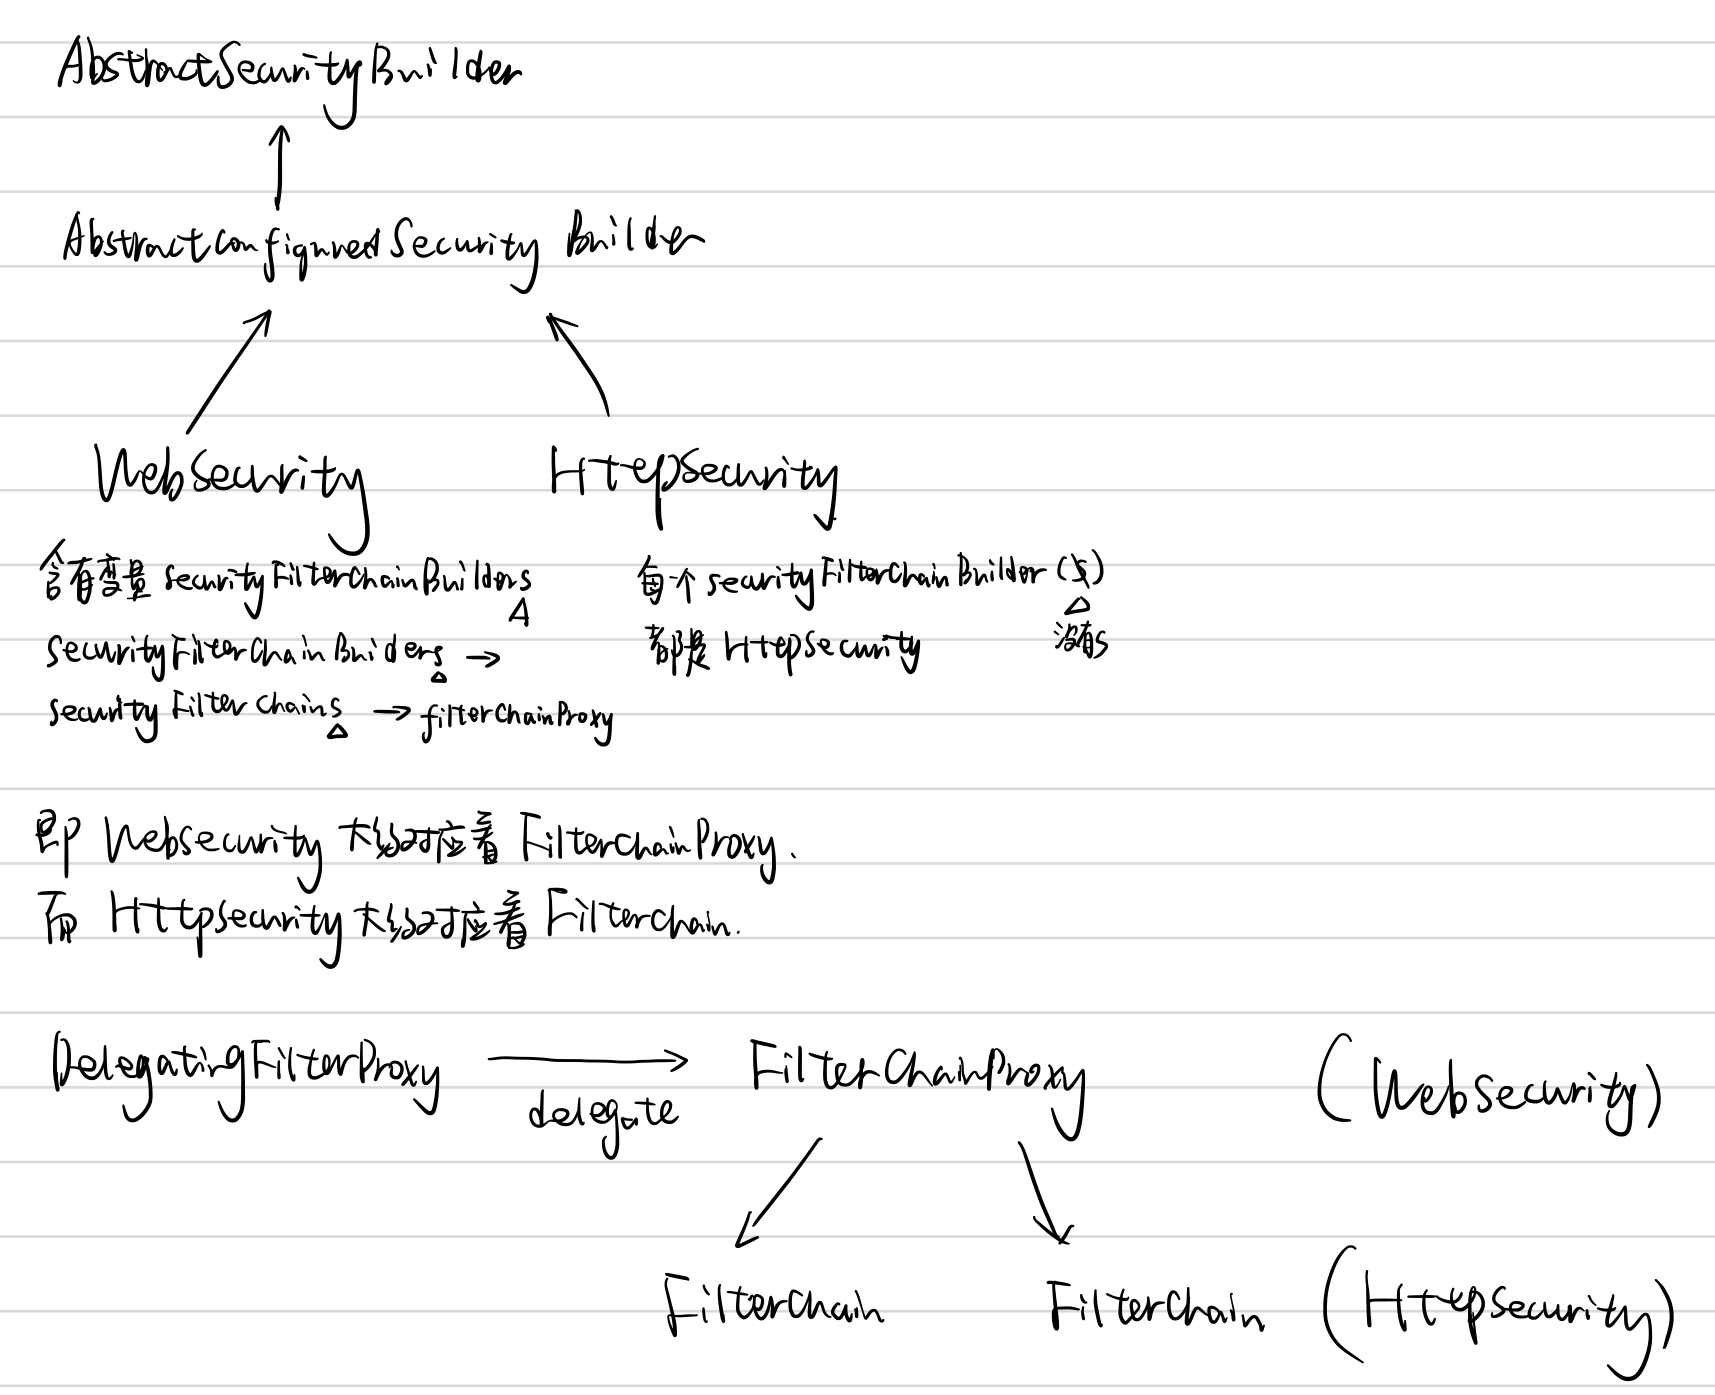 AbstractSecurityBuilder
AbstractConfiguredSecurityBuilder
WebSecurity HttpSecurity
含有变量 securityFilterChainBuilders 每个 securityFilterChainBuilder (s)
都是 HttpSecurity 没有s
securityFilterChainBuilders →
securityFilterChains → filterChainProxy
即 WebSecurity 大约对应着 FilterChainProxy.
而 HttpSecurity 大约对应着 FilterChain.
DelegatingFilterProxy FilterChainProxy (WebSecurity)
delegate
FilterChain FilterChain (HttpSecurity)